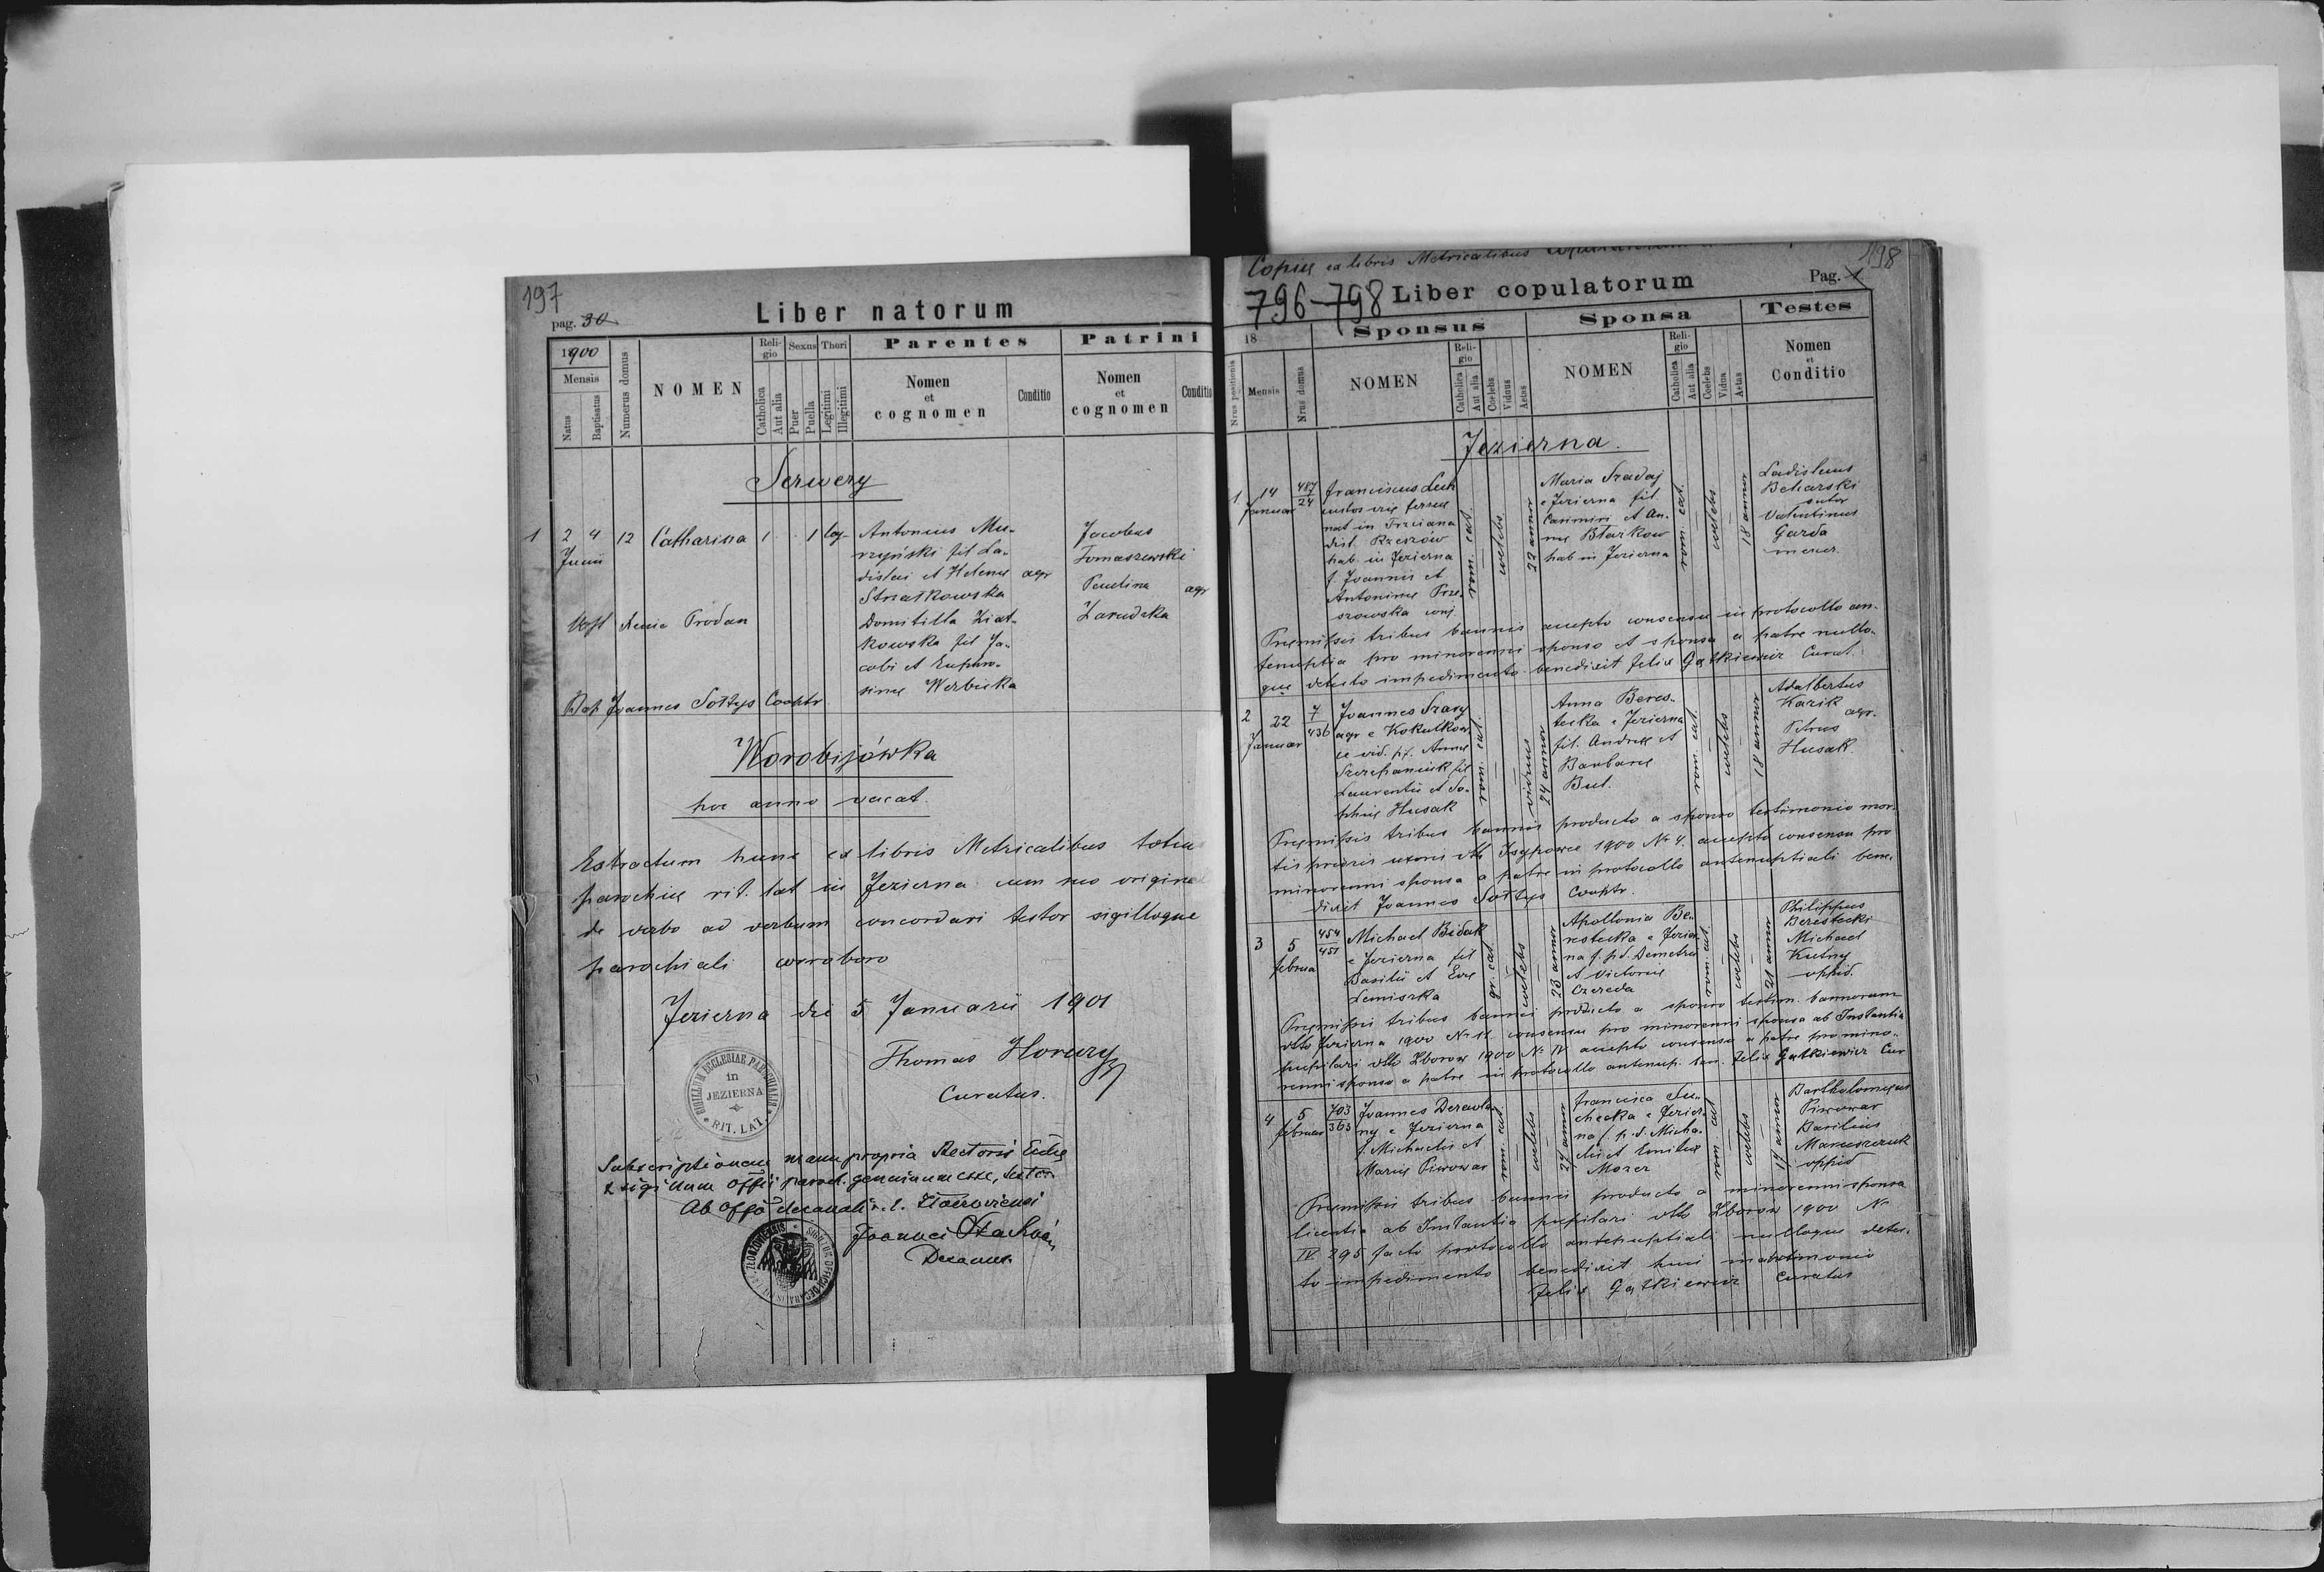 197
pag. 30
Liber natorum
1900
Mensis
Natus
Baptisatus
Numerus domus
NOMEN
Reli-
gio
Catholica
Aut alia
Sexus
Puer
Puella
Thori
Legitimi
Illegitimi
Parentes
Nomen
et
cognomen
Conditio
Patrini
Nomen
et
cognomen
Conditio
Serwery
1 2 4 12 Catharina 1 1 leg.
Junii
Antonius Mu-
rzyński fil La-
dislai et Helenae agr
Strzatkowska
Domitilla Ziat-
kowska fil Ja-
cobi et Euphro-
sinae Werbicka
Jacobus
Tomaszewski
Paulina agr
Zarudzka
Obst Xenia Prodan
Bap Joannes Sołtys Cooptr
Worobijówka
hoc anno vacat.
Extractum hunc ex libris Metricalibus totius
parochiae rit. lat in Jezierna cum suo origina
de verbo ad verbum concordari testor sigilloque
parochiali corroboro
Jezierna die 5 Januarii 1901
Thomas
Curatus.
SIGILLUM ECCLESIAE PAROCHIALIS
in
JEZIERNA
RIT. LAT.
Subscriptionem manu propria Rectoris Eccles
& sigillum offii paroch. genuinum esse, testor.
Ab Offo decanali r. l. Złoczoviensi
Joannes
Decanus.
198
Copia ex libris Metricalibus copulatorum
796-798 Liber copulatorum
Pag. 1
18
Nrus positionis
Mensis
Nrus domus
Sponsus
NOMEN
Reli-
gio
Catholica
Aut alia
Coelebs
Viduus
Aetas
Sponsa
NOMEN
Reli-
gio
Catholica
Aut alia
Coelebs
Vidua
Aetas
Testes
Nomen
et
Conditio
Jezierna.
1 14 487
Januar 24
Franciscus Lech
custos viae ferreae
nat in Trzciana
dist. Rzeszów
hab. in Jezierna
f. Joannis et
Antoninae Prze-
szowska conj.
rom. cat.
coelebs
22 annor
Maria Sradaj
e Jezierna fil.
Casimiri et An-
nae Błazkow
hab in Jezierna
rom. cat.
coelebs
18 annor
Ladislaus
Betarski
sutor
Valentinus
Garda
mercr.
Praemissis tribus bannis accepto consensu in protocollo an-
tenuptia pro minorenni sponso et sponsa a patre nullo-
que detecto impedimento benedixit Felix Gątkiewicz Curat.
2 22 7
Januar 436
Joannes Szary
agr e Kokutkow
ce vid. p.f. Annae
Szczepaniuk fil
Laurentii et So-
phiae Husak
rom. cat.
viduus
24 annor
Anna Beres-
tecka e Jezierna
fil. Andreae et
Barbarae
But.
rom. cat.
coelebs
18 annor
Adalbertus
Kazik
agr.
Petrus
Husak
Praemissis tribus bannis producto a sponso testimonio mor-
tis prioris uxoris dtto Isypowce 1900 Nr 4. accepto consensu pro
minorenni sponsa a patre in protocollo antenuptiali bene-
dixit Joannes Sołtys Cooptr.
3 5 454
Februa 451
Michael Bidak
e Jezierna fil
Basilii et Evae
Lemiszka
gr. cat
coelebs
23 annor
Apollonia Be-
restecka e Jezier
na f. p.d. Demetrii
et Victoriae
Czereda
rom. cat.
coelebs
21 annor
Philippus
Berestecki
Michael
Kutny
oppid.
Praemissis tribus bannis producto a sponso testim. bannorum
dtto Jezierna 1900 Nr 11. consensu pro minorenni sponsa ab Instantia
pupilari dtto Zborow 1900 Nr IV accepto consensu a patre pro mino-
renni sponso a patre in protocollo antenup. ben. Felix Gątkiewicz Cur
4 5 703
Februar 363
Joannes Derewla
ny e Jezierna
f. Michaelis et
Mariae Piwowar
rom. cat
coelebs
24 annor
Francisca Su-
checka e Jezier
na f. p.d. Micha-
elis et Emiliae
Mazer
rom cat
coelebs
19 annor
Bartholomaeus
Piwowar
Basilius
Maruszczak
oppid
Praemissis tribus bannis producto a minorenni sponsa
licentia ab Instantia pupilari dtto Zborow 1900 Nr
IV 295 facto protocollo antenuptiali nulloque detec-
to impedimento benedixit huic matrimonio
Felix Gątkiewicz Curatus